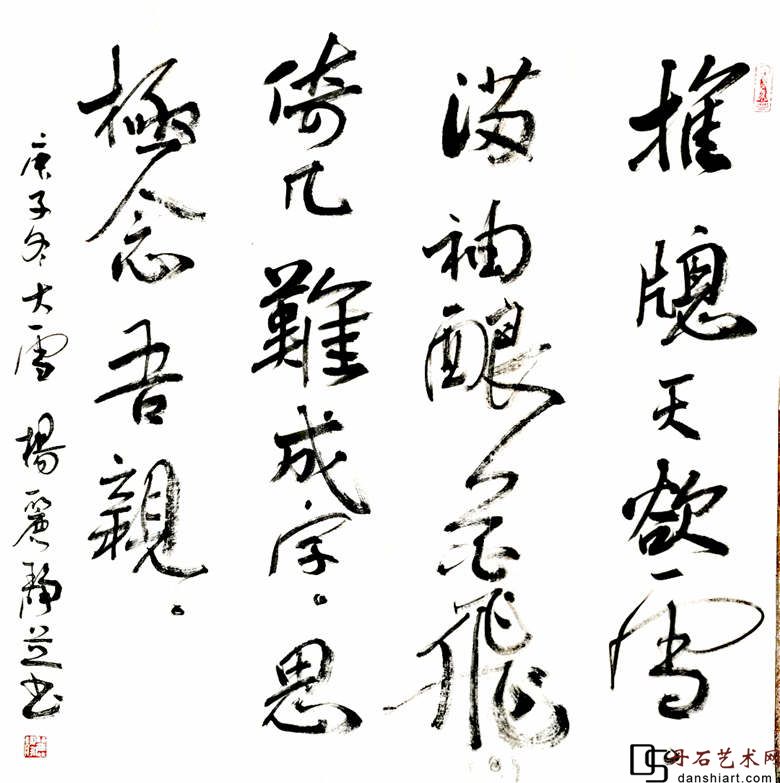 推牕天欲雪
满袖酿花飛
倚几難成字。思
極念吾親。
庚子冬大雪 楊麗静並书
丹石艺术网
danshiart.com